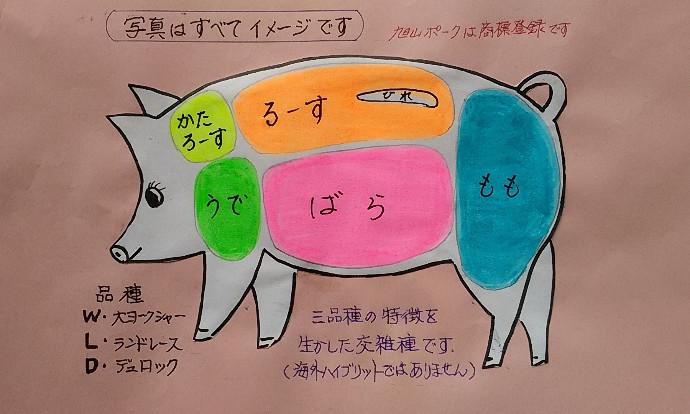 写真はすべてイメージです
旭山ポークは商標登録です
かた
ろーす
ろーす
ひれ
うで
ばら
もも
品種
W・大ヨークシャー
L・ランドレース
D・デュロック
三品種の特徴を
生かした交雑種です.
(海外ハイブリットではありません)